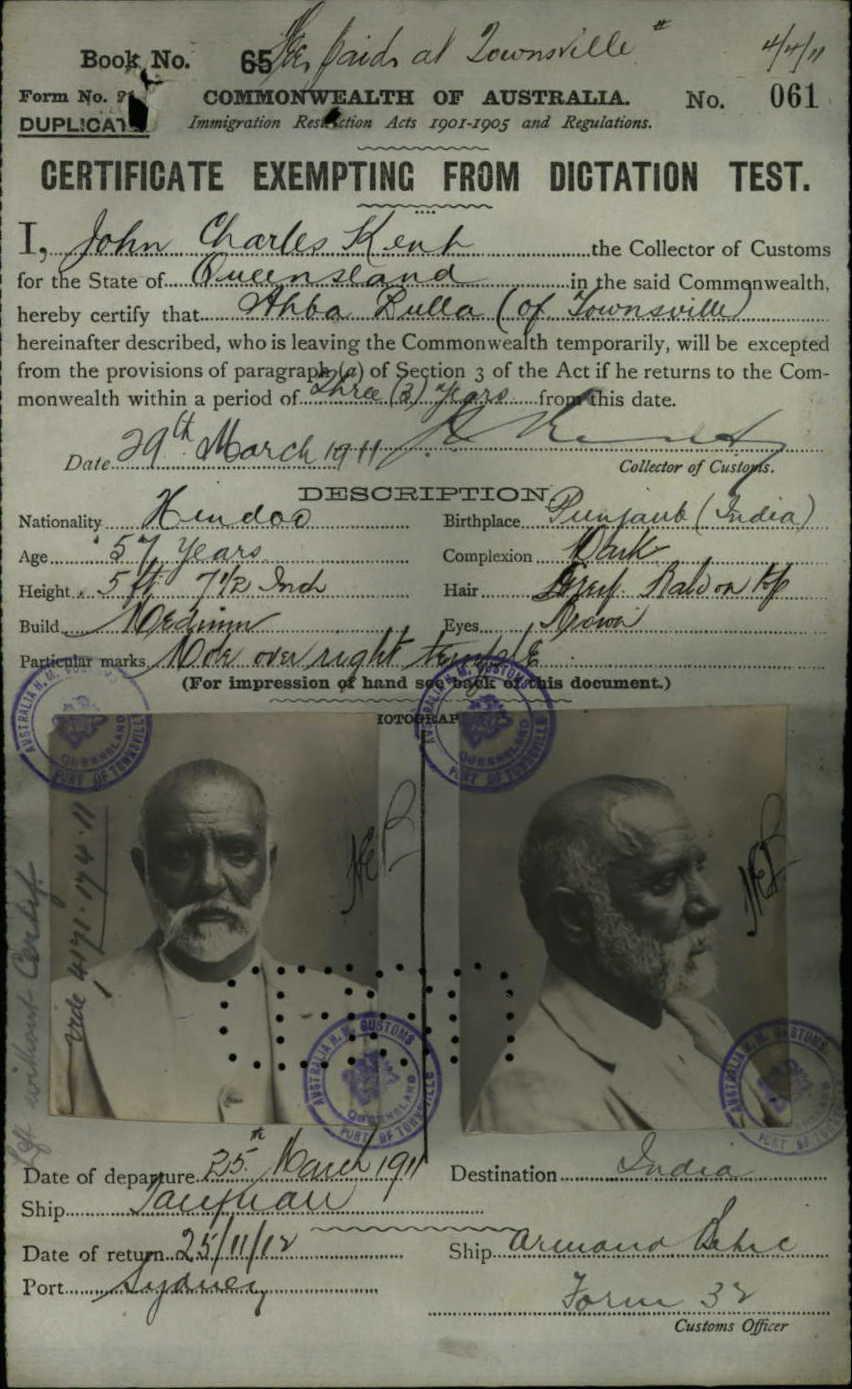 Fee paid at Townsville 4/4/11
Book No. 65
Form No. COMMONWEALTH OF AUSTRALIA. No. 061
DUPLICATE Immigration Restriction Acts 1901-1905 and Regulations.
CERTIFICATE EXEMPTING FROM DICTATION TEST.
I, John Charles Kent the Collector of Customs
for the State of Queensland in the said Commonwealth,
hereby certify that Abba Rulla (of Townsville)
hereinafter described, who is leaving the Commonwealth temporarily, will be excepted
from the provisions of paragraph (a) of Section 3 of the Act if he returns to the Com-
monwealth within a period of Three (3) Years from this date.
Date 29th March 1911
Collector of Customs.
DESCRIPTION
Nationality Hindoo Birthplace Punjaub (India)
Age 57 Years Complexion Dark
Height 5 ft 7½ Inch Hair Grey. Bald on top
Build Medium Eyes Brown
Particular marks Mole over right temple
(For impression of hand see back of this document.)
AUSTRALIA H.M. CUSTOMS QUEENSLAND PORT OF TOWNSVILLE
AUSTRALIA H.M. CUSTOMS QUEENSLAND PORT OF TOWNSVILLE
Left without Certif.
vide 4171. 19.4.11
AUSTRALIA H.M. CUSTOMS QUEENSLAND PORT OF TOWNSVILLE
AUSTRALIA H.M. CUSTOMS PORT OF TOWNSVILLE
Date of departure 25th March 1911 Destination India
Ship Taiyuan
Date of return 25/11/12 Ship Armand Behic
Port Sydney
Form 32
Customs Officer